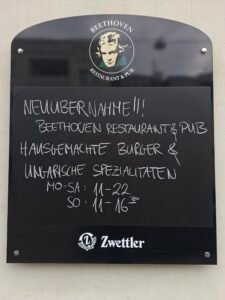 BEETHOVEN
RESTAURANT & PUB
NEUÜBERNAHME!!!
BEETHOVEN RESTAURANT & PUB
HAUSGEMACHTE BURGER &
UNGARISCHE SPEZIALITÄTEN
MO-SA: 11-22
SO: 11-16
Z Zwettler